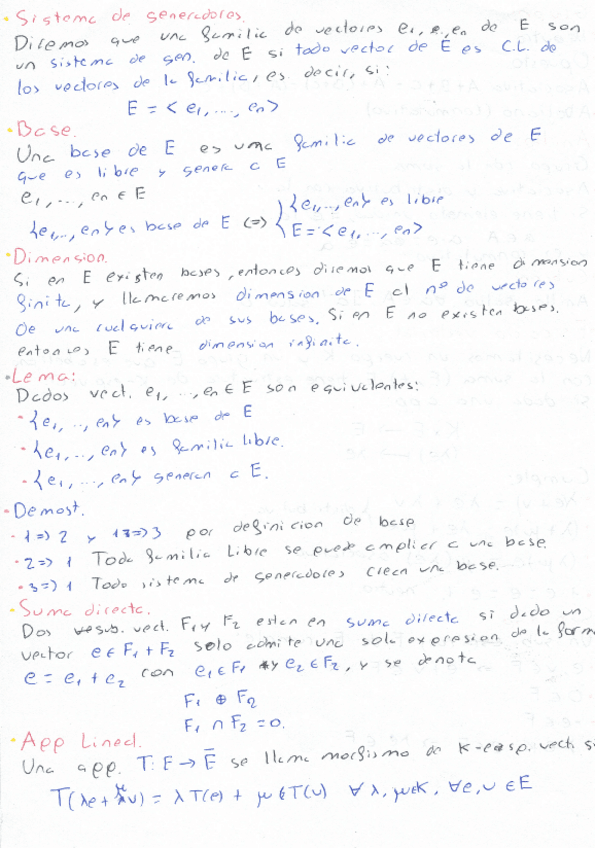 • Sistema de generadores.
Diremos que una familia de vectores e1, e, en de E son
un sistema de gen. de E si todo vector de E es C.L. de
los vectores de la familia, es decir, si:
E = < e1, ...., en >
• Base.
Una base de E es una familia de vectores de E
que es libre y genera a E
e1, ..., en ∈ E
{e1,.., en} es base de E <=> { {e1, .., en} es libre
E = < e1, ..., en >
• Dimension.
Si en E existen bases, entonces diremos que E tiene dimension
finita, y llamaremos dimension de E al nº de vectores
de una cualquiera de sus bases. Si en E no existen bases,
entonces E tiene dimension infinita.
• Lema:
Dados vect. e1, .., en ∈ E son equivalentes:
• {e1, .., en} es base de E
• {e1, .., en} es familia libre.
• {e1, .., en} generan a E.
• Demost.
• 1 => 2 y 1 => 3 por definicion de base
• 2 => 1 Toda familia libre se puede ampliar a una base.
• 3 => 1 Todo sistema de generadores crean una base.
• Suma directa.
Dos sub. vect. F1 y F2 estan en suma directa si dado un
vector e ∈ F1 + F2 solo admite una sola expresion de la forma
e = e1 + e2 con e1 ∈ F1 y e2 ∈ F2, y se denota
F1 ⊕ F2
F1 ∩ F2 = 0.
• App Lineal.
Una app. T: E → Ē se llama morfismo de K-esp. vect. si
T(λe + μv) = λT(e) + μT(v) ∀ λ, μ ∈ K, ∀e, v ∈ E